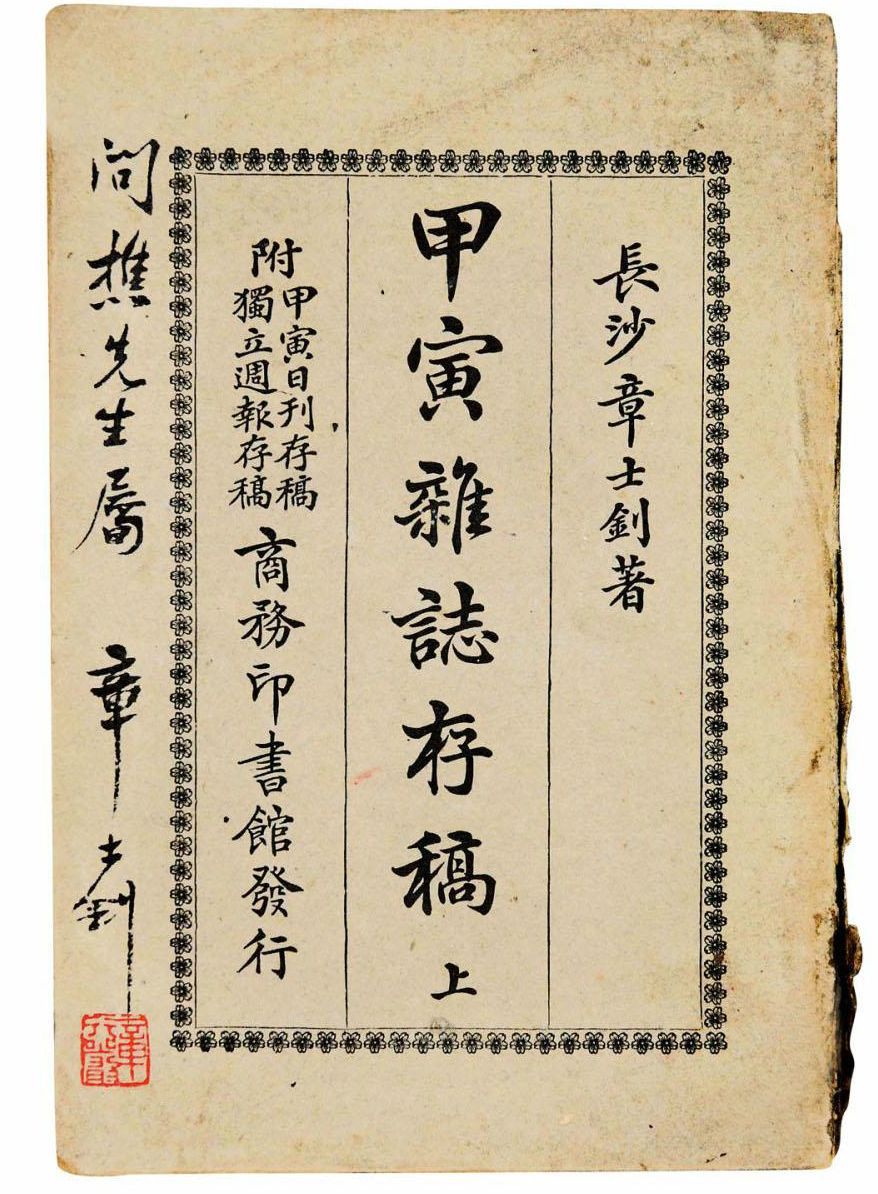 長沙章士釗著
甲寅雜誌存稿 上
附
甲寅日刊存稿
獨立週報存稿
商務印書館發行
問樵先生屬 章士釗